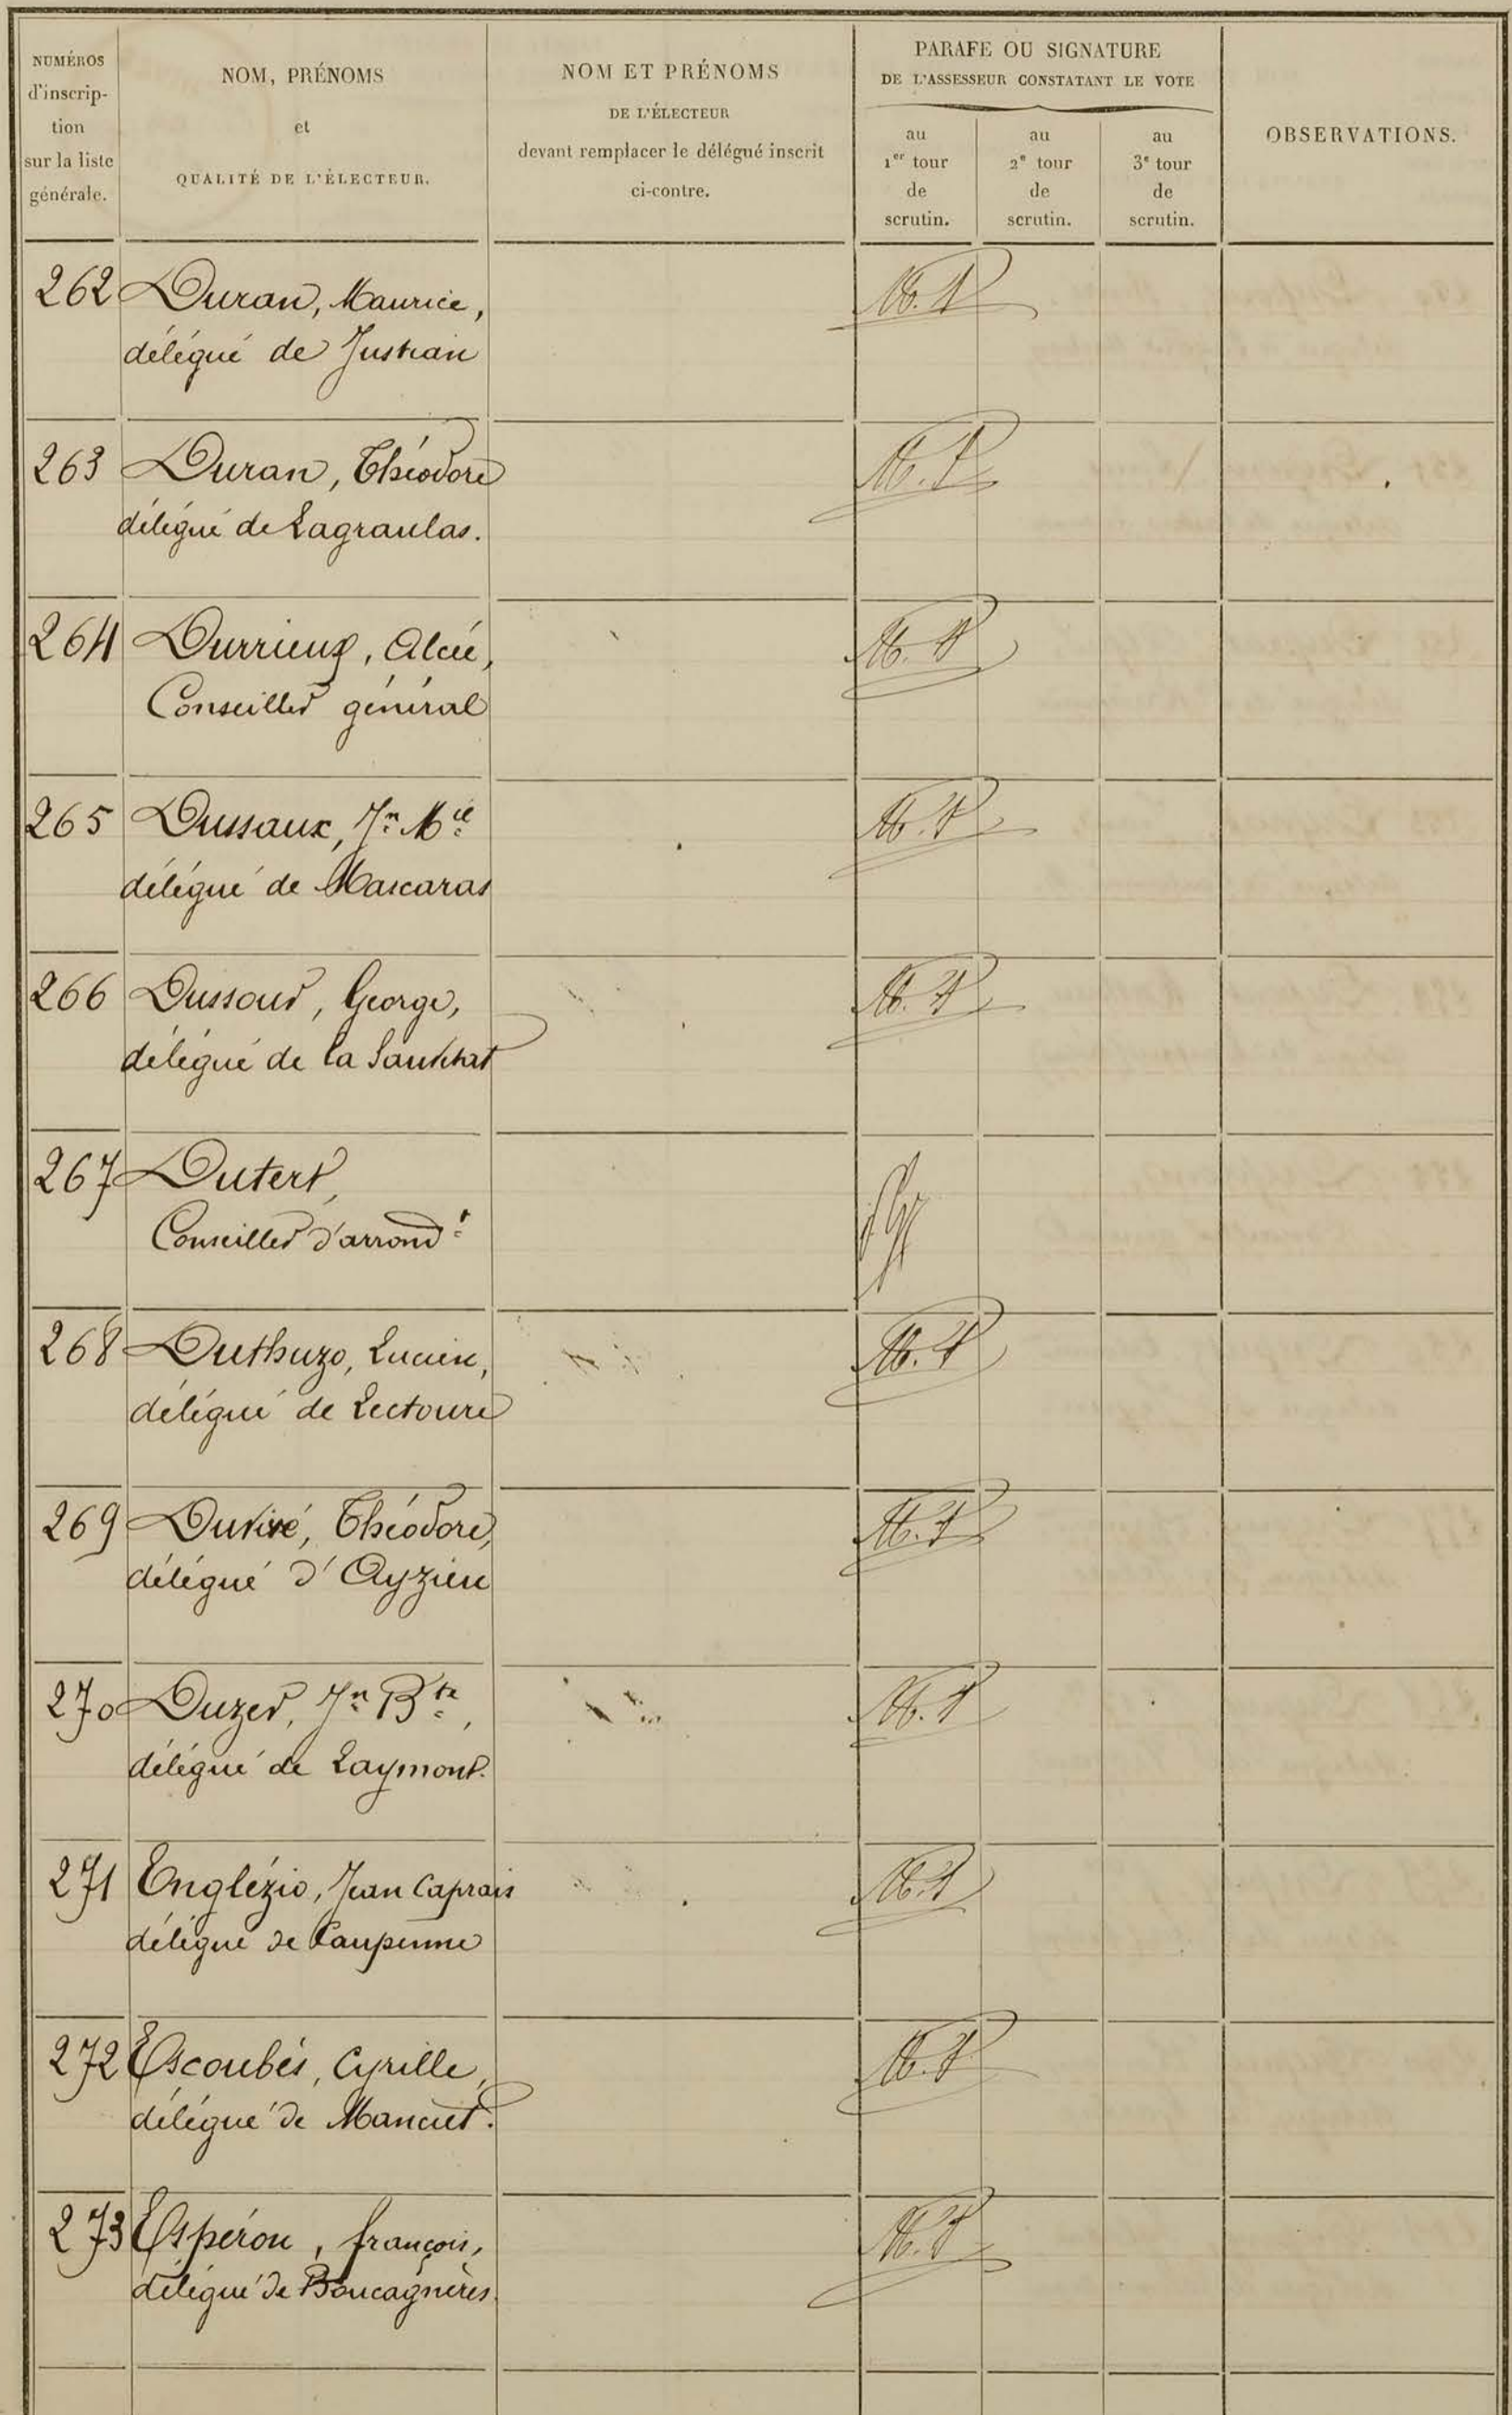 NUMÉROS
d'inscrip-
tion
sur la liste
générale.
NOM, PRÉNOMS
et
QUALITÉ DE L'ÉLECTEUR.
NOM ET PRÉNOMS
DE L'ÉLECTEUR
devant remplacer le délégué inscrit
ci-contre.
PARAFE OU SIGNATURE
DE L'ASSESSEUR CONSTATANT LE VOTE
au
1er tour
de
scrutin.
au
2e tour
de
scrutin.
au
3e tour
de
scrutin.
OBSERVATIONS.
262 Duran, Maurice,
délégué de Justian
263 Duran, Théodore
délégué de Lagraulas.
264 Durrieux, Alcée,
Conseiller général
265 Dussaux, Jn Mie
délégué de Mascaras
266 Dussour, George,
délégué de la Sauvetat
267 Dutert,
Conseiller d'arrondt
268 Duthuzo, Lucien,
délégué de Lectoure
269 Duviré, Théodore,
délégué d'Ayzieu
270 Duzer, Jn Bte,
délégué de Laymont.
271 Englézio, Jean Caprais
délégué de Caupenne
272 Escoubès, Cyrille,
délégué de Manciet.
273 Espérou, françois,
délégué de Boucagnères.